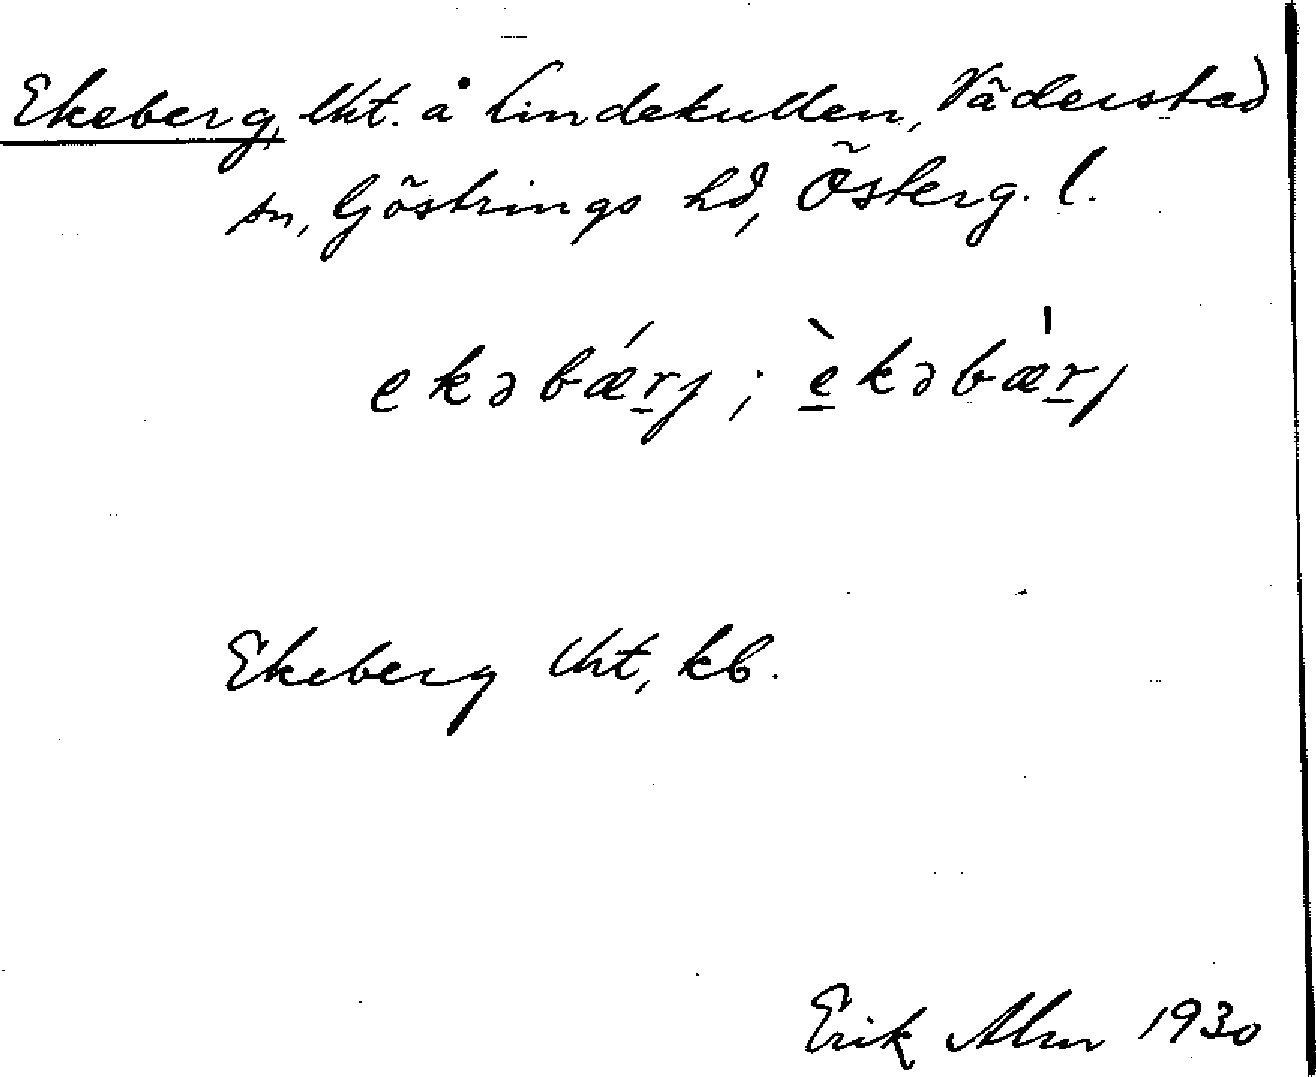 Ekeberg, lht. å Lindekullen, Väderstad
sn, Göstrings hd, Österg. l.
ekəbǽrj; èkəbæ'rj
Ekeberg lht, kb.
Erik Alm 1930